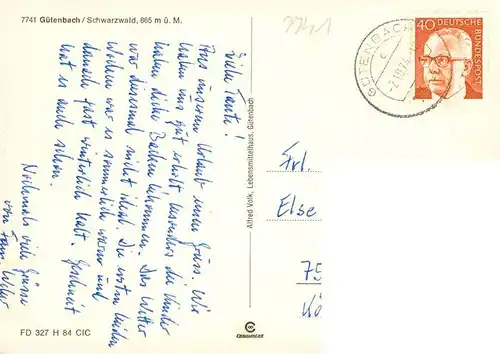 7741 Gütenbach / Schwarzwald, 865 m ü. M.
7741
Liebe Tante!
Aus unserem Urlaub einen Gruss. Wir
haben uns gut erholt, besonders die Kinder
haben dicke Backen bekommen. Das Wetter
war diesmal nicht ideal. Die ersten beiden
Wochen war es sommerlich warm und
danach fast winterlich kalt. Geschneit
hat es auch schon.
Nochmals viele Grüsse
von Fam.
Alfred Volk, Lebensmittelhaus, Gütenbach
GÜTENBACH
40 DEUTSCHE BUNDESPOST
Frl.
Else
75
Kö
FD 327 H 84 CIC